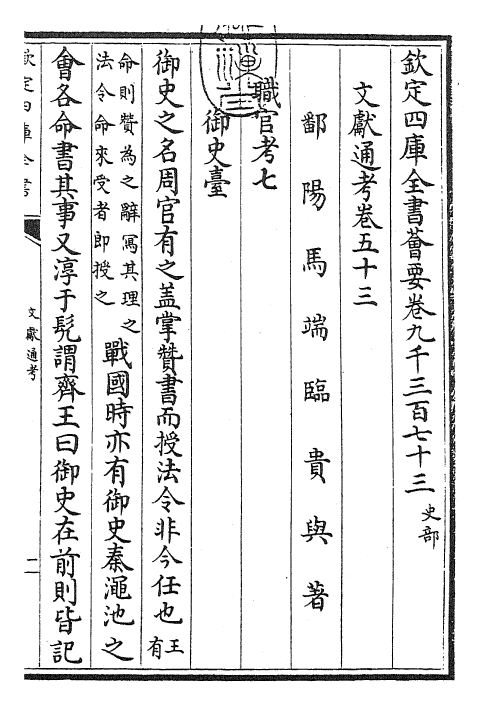 欽定四庫全書薈要卷九千三百七十三 史部
文獻通考卷五十三
鄱陽馬端臨貴與著
職官考七
御史臺
御史之名周官有之盖掌贊書而授法令非今任也 王有
命則贊為之辭寫其理之
法令命來受者即授之
戰國時亦有御史秦澠池之
會各命書其事又淳于髡謂齊王曰御史在前則皆記
欽定四庫全書
文獻通考
二